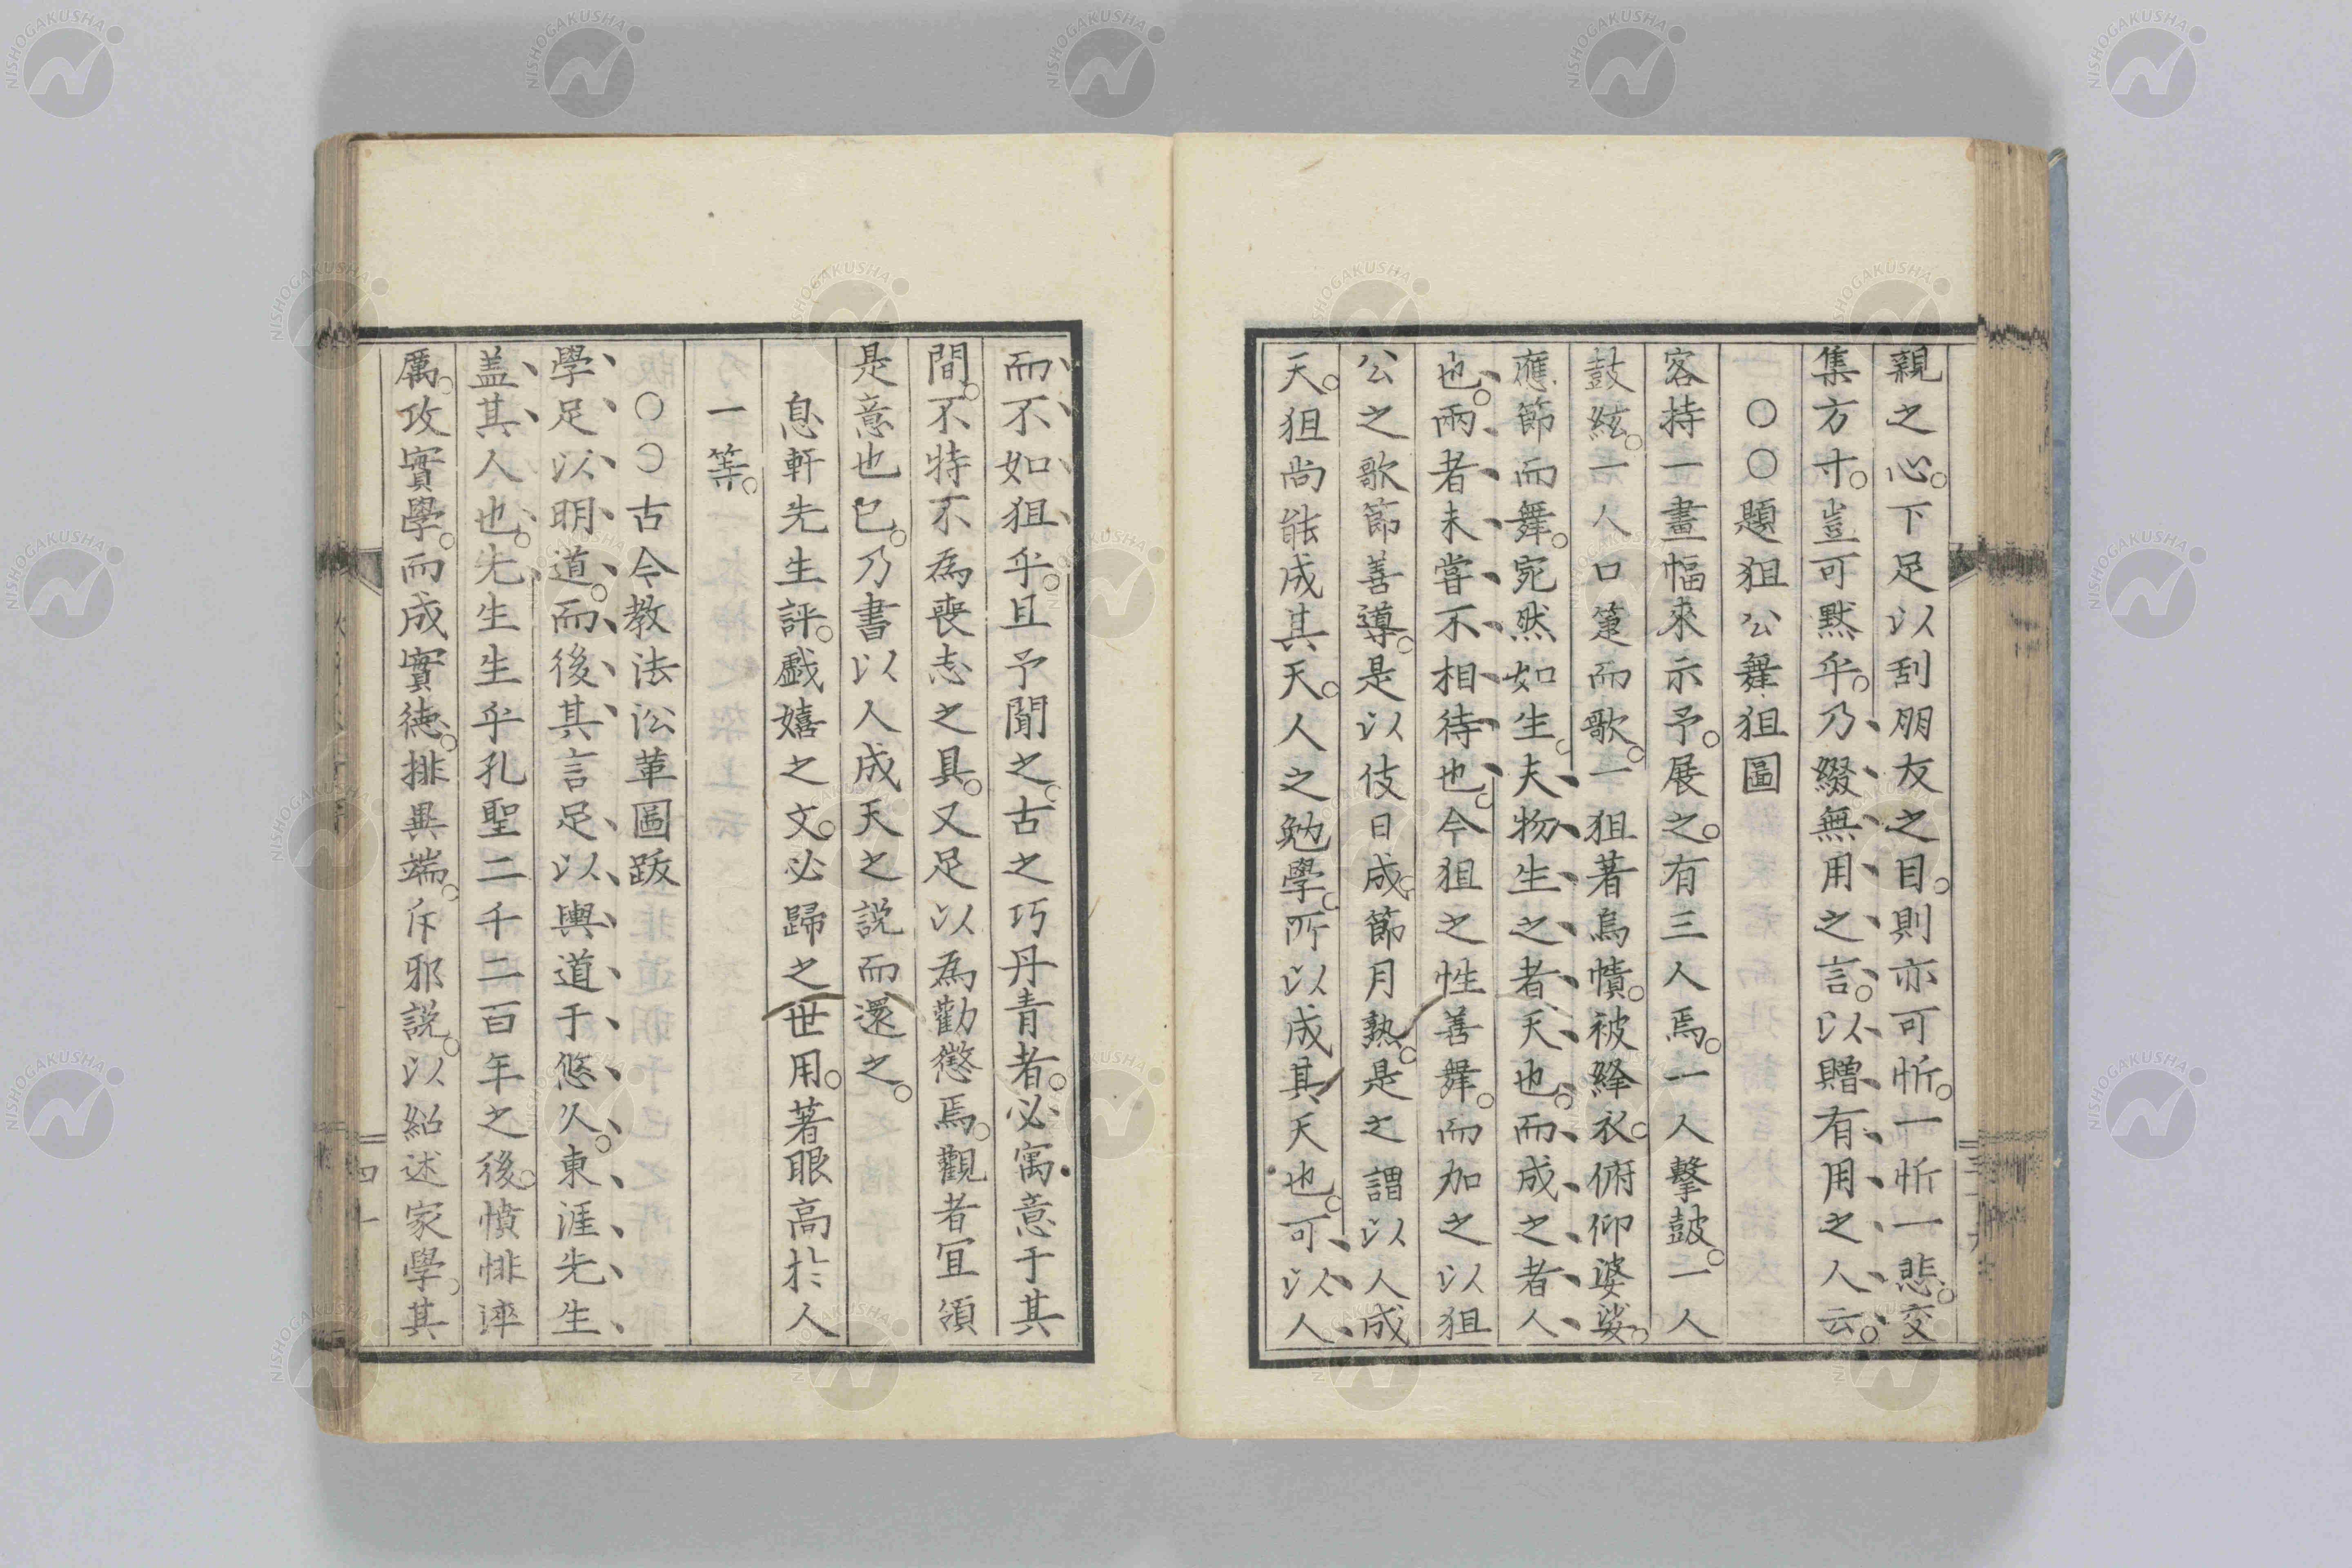 親之心。下足以刮朋友之目。則亦可忻。一忻一悲。交
集方寸。豈可黙乎。乃綴無用之言。以贈有用之人云。
〇〇題狙公舞狙圖
客持一畫幅來示予。展之。有三人焉。一人擊鼓。一人
鼓絃。一人口篴而歌。一狙著烏幘。被絳衣。俯仰婆娑。
應節而舞。宛然如生。夫物生之者天也。而成之者人
也。兩者未嘗不相待也。今狙之性善舞。而加之以狙
公之歌節善導。是以伎日成。節月熟。是之謂以人成
天。狙尚能成其天。人之勉學。所以成其天也。可以人
而不如狙乎。且予聞之。古之巧丹青者。必寓意于其
間。不特不為喪志之具。又足以為勸懲焉。觀者宜領
是意也已。乃書以人成天之説而還之。
息軒先生評。戯嬉之文。必歸之世用。著眼高於人
一等。
〇〇古今教法㳂革圖跋
學足以明道。而後其言足以輿道于悠久。東涯先生
盖其人也。先生生乎孔聖二千二百年之後。憤悱淬
厲。攻實學。而成實徳。排異端。斥邪説。以紹述家學。其
四十
NISHOGAKUSHA